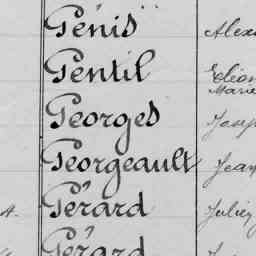 Génis
Gentil Eléon
Marie
Georges Josep
Georgeault Jean
A. Gérard Julien
Gérard